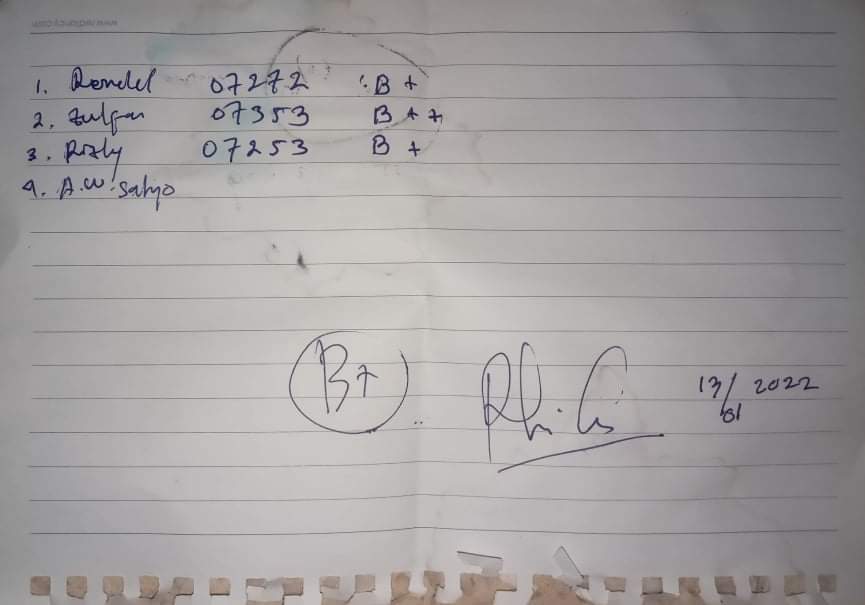 1. Rendel 07272 B +
2. Zulfan 07353 B + +
3. Rizly 07253 B +
4. A.W. Satyo
B+
13/01 2022